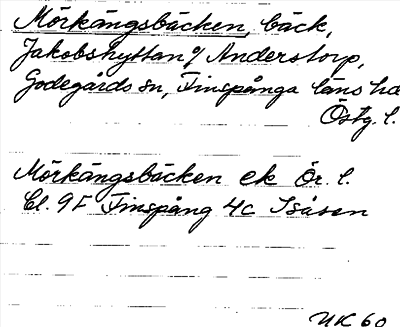 Mörkängsbäcken, bäck,
Jakobshyttan o/ Anderstorp,
Godegårds sn, Finspånga läns hd
Östg. l.
Mörkängsbäcken ek Ör. l.
Bl. 9F Finspång 4c Isåsen
NK 60